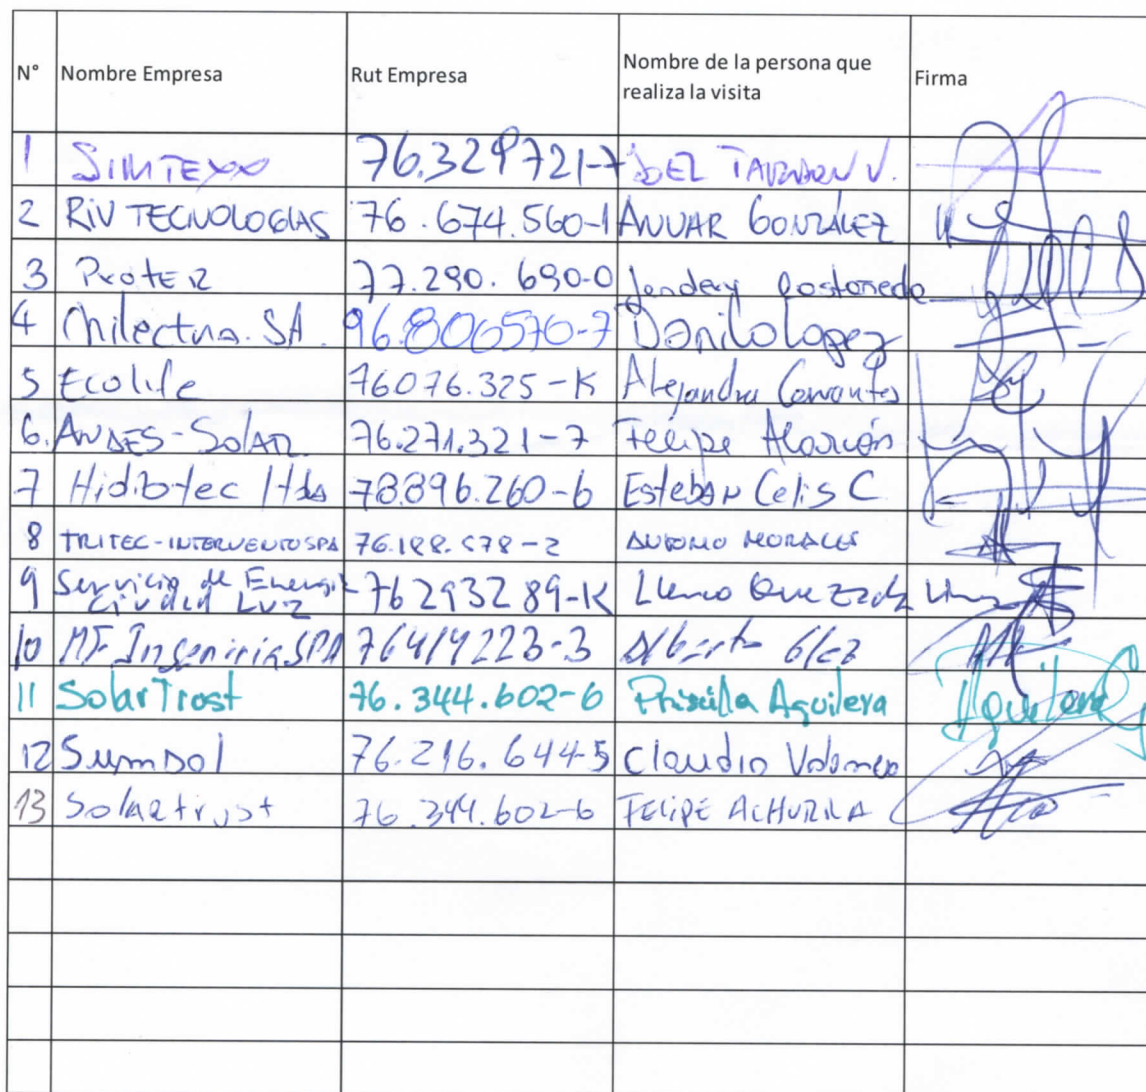 N° Nombre Empresa Rut Empresa Nombre de la persona que realiza la visita Firma
1 SIMTEXX 76.329721-7
2 RIV TECNOLOGIAS 76.674.560-1 ANUAR GONZÁLEZ
3 Proter 77.290.690-0
4 Chilectra. SA. 96.800570-7 Danilo Lopez
5 Ecolife 76076.325-K Alejandra Cervantes
6. ANDES-Solar 76.271.321-7 Felipe Alarcón
7 Hidrotec ltda 78.896.260-6 Esteban Celis C
8 TRITEC-INTERVENTO SPA 76.188.578-2 ANTONIO MORALES
9 Servicio de Energia Ciudad Luz 76293289-K
10 MF Ingenieria SPA 76419223-3 Alberto
11 SolarTrost 76.344.602-6 Priscilla Aguilera Aguilera
12 Sumsol 76.216.644-5 Claudio
13 Solartrust 76.344.602-6 FELIPE ACHURRA